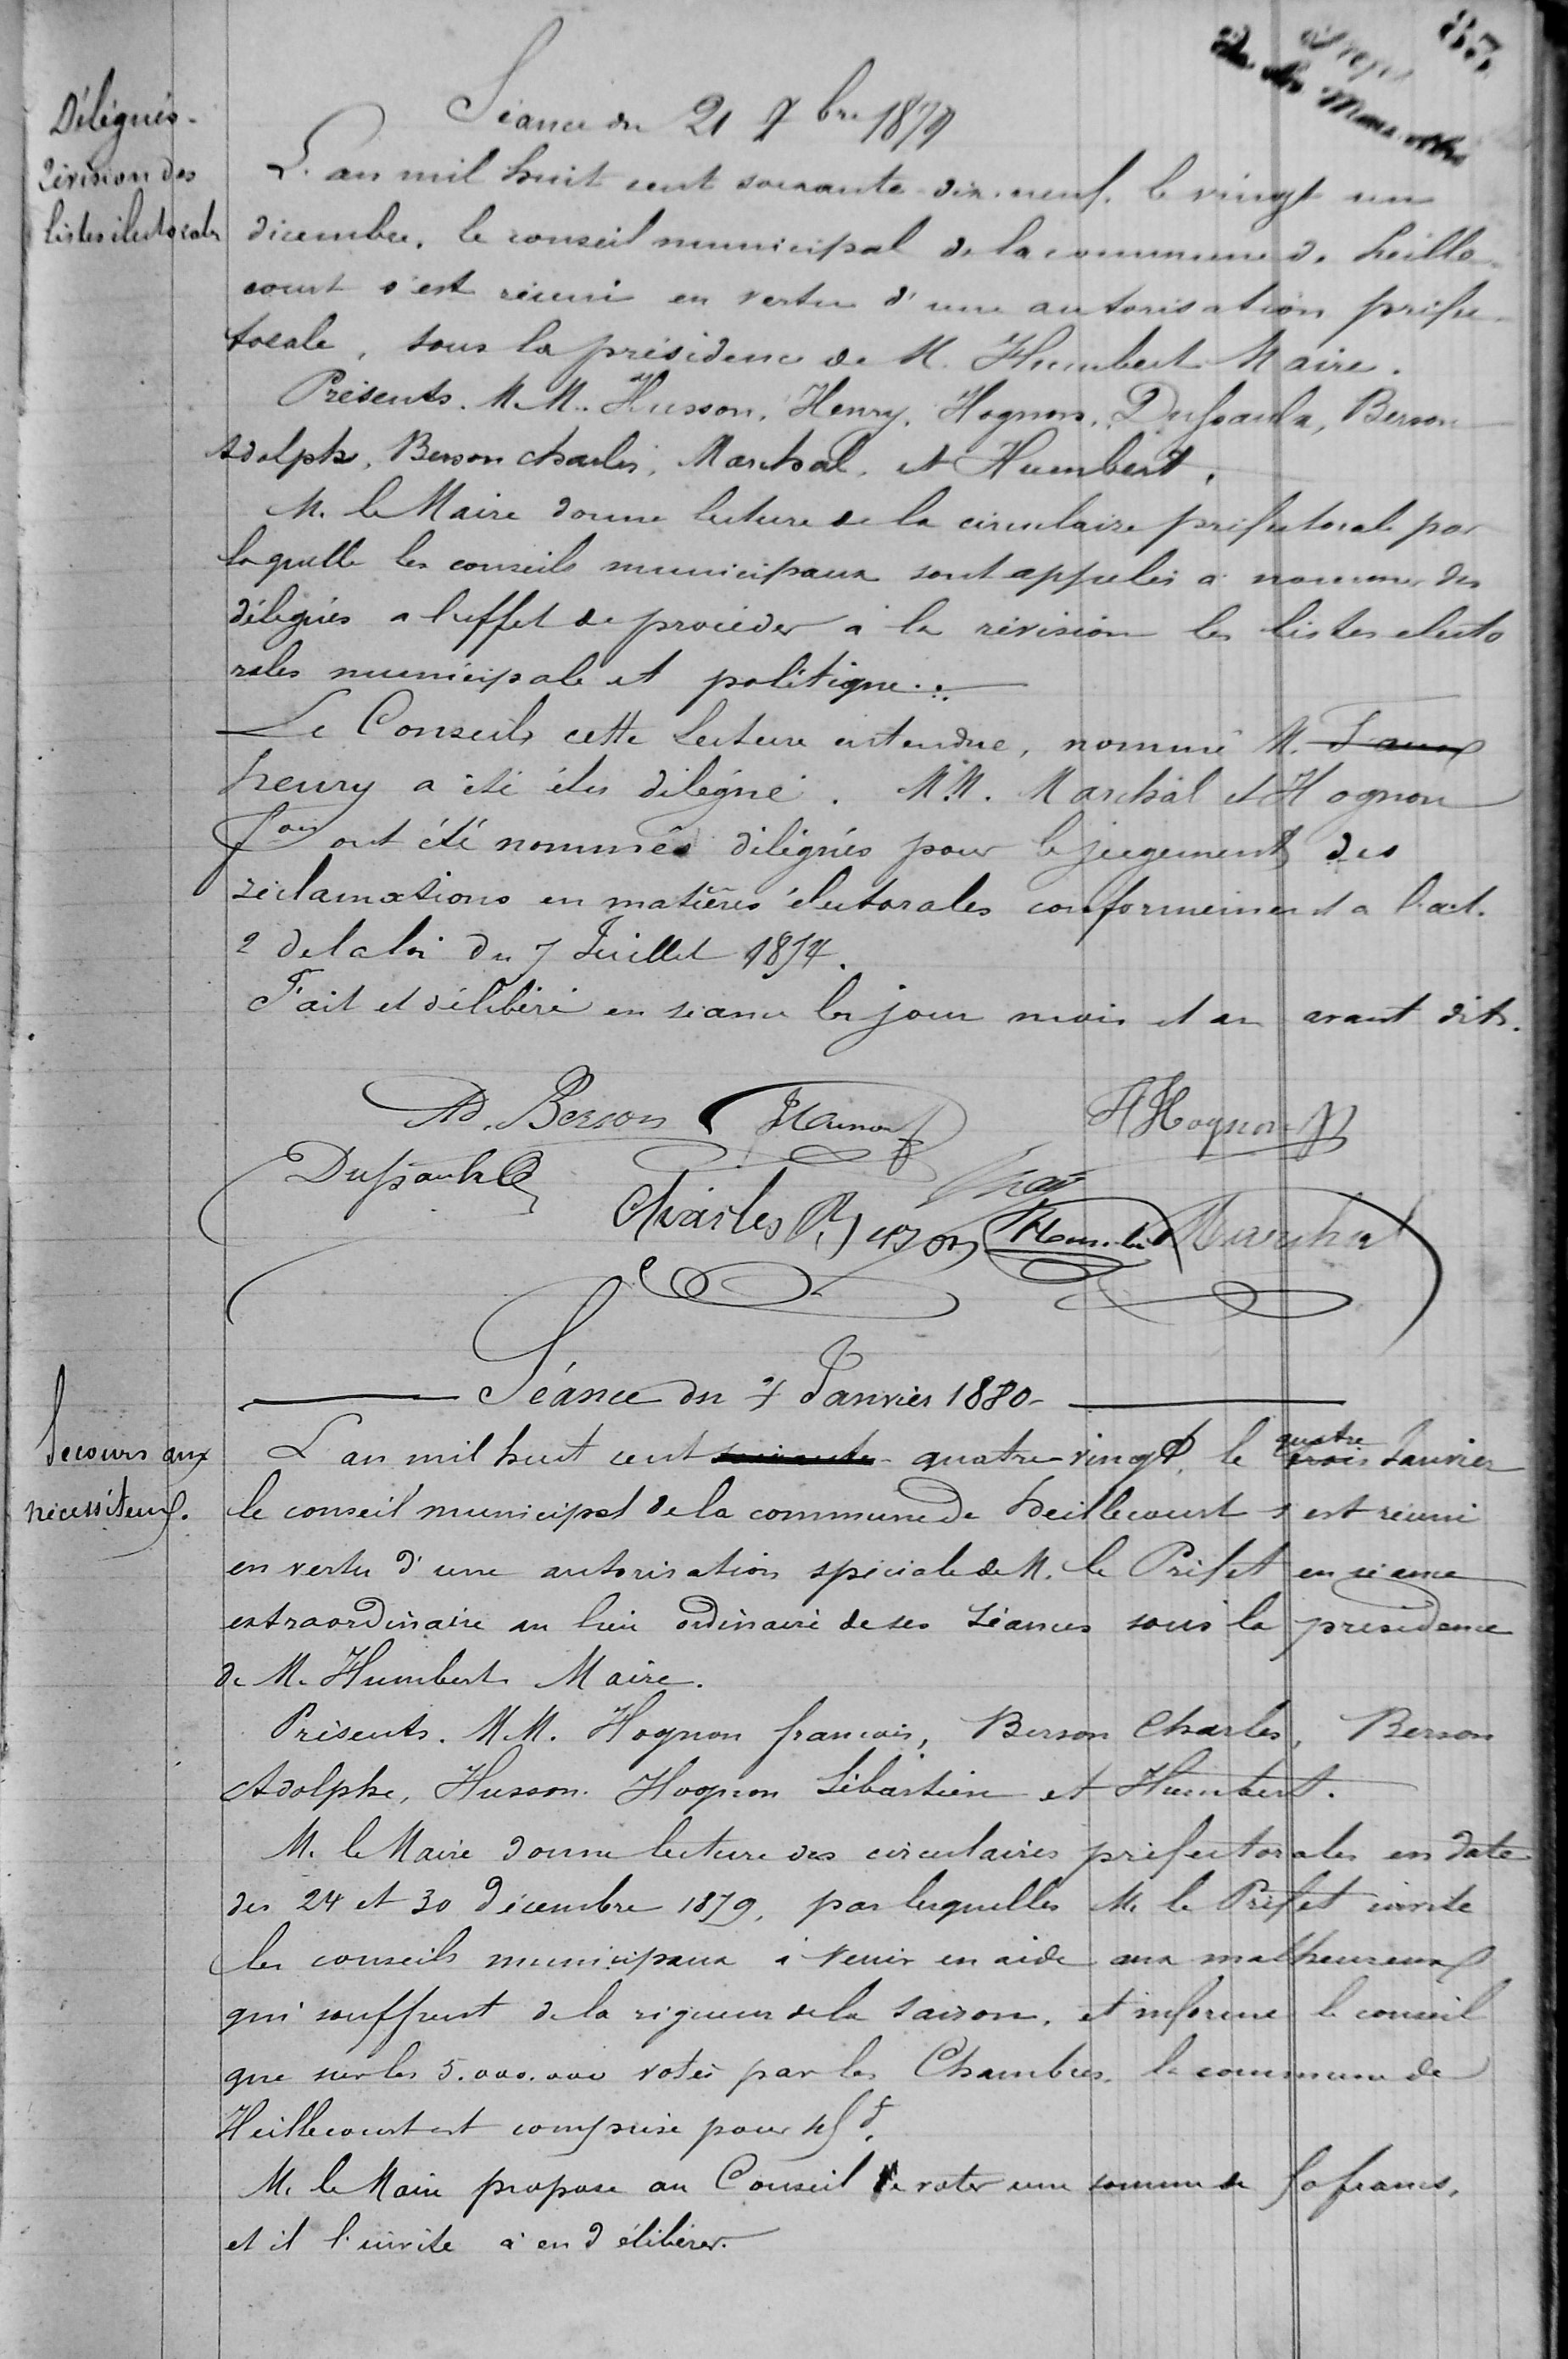 83
Délégués.
Révision des
listes électorales
Séance du 21 Xbre 1879
L'an mil huit cent soixante-dix-neuf, le vingt un
décembre, le conseil municipal de la commune de heille-
court s'est réuni en vertu d'une autorisation préfec-
torale, sous la présidence de M. Humbert Maire.
Présents. M.M. Husson, Henry, Hognon, Dussaulx, Berson
Adolphe, Berson charles, Marchal, et Humbert.
M. le Maire donne lecture de la circulaire préfectorale par
laquelle les conseils municipaux sont appelés a nommer des
délégués a l'effet de procéder à la révision les listes electo
rales municipale et politique.
Le Conseil, cette lecture entendue, nommé M.
henry a été élu délégué. M.M. Marchal et Hognon
fois ont été nommés délégués pour le jugement des
réclamations en matières électorales conformement a l'art.
2 de la loi du 7 Juillet 1874.
Fait et délibéré en séance les jour mois et an avant dits.
Ad. Berson
H Hognon
Dussaulx
Charles Berson Humbert Marchal
Séance du 4 Janvier 1880-
Secours aux
nécessiteux.
L'an mil huit cent soixante quatre vingt, le trois quatre Janvier
le conseil municipal de la commune de heillecourt s'est réuni
en vertu d'une autorisation spéciale de M. le Préfet en séance
extraordinaire au lieu ordinaire de ses séances sous la présidence
de M. Humbert Maire.
Présents. M.M. Hognon francois, Berson Charles, Berson
Adolphe, Husson. Hognon Sébastien et Humbert.
M. le Maire donne lecture des circulaires préfectorales en date
des 24 et 30 décembre 1879, par lesquelles M. le Préfet invite
les conseils municipaux à venir en aide aux malheureux
qui souffrent de la rigueur de la saison, et informe le conseil
que sur les 5.000.000 votés par les Chambres, la commune de
Heillecourt est comprise pour
M. le Maire propose au Conseil de voter une somme de 50 francs,
et il l'invite à en délibérer.